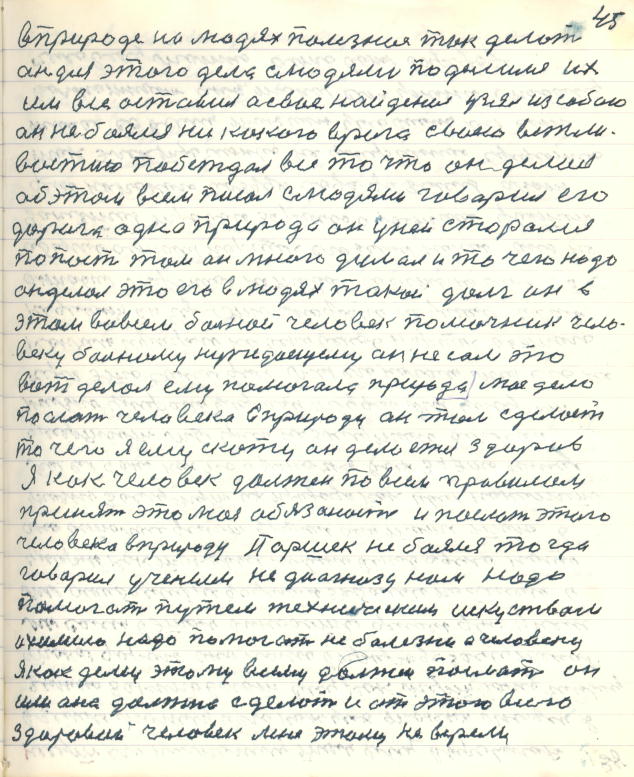 45
вприроде на людях полезная так делат
он для этого дела слюдями поделился их
им все оставил асвае найденае узял изсобою
он не боялся ни какого врага своею вежли-
востию побеждал все то что он делал
обэтом всем писал слюдями говорил его
дорога адна природа он у ней старался
попост там он много думал и то чего надо
он делал это его в людях такой долг он в
этом вовсем больной человек помочник чело-
веку больному нуждающему он не сам это
вот делал ему помогала природа мое дело
послат человека вприроду он там сделает
то чего я ему скажу он делается здоров
Я как человек должен по всем правилам
принят это моя обязаност и послат этого
человека вприроду Паршек не боялся тогда
говарил ученим не диагнозу нам надо
помогат путем техническим искуством
ихимию надо помогат не болезни а человеку
Якак делец этому всему должен послат он
или ана должна сделат и от этого всего
здоровой человек мне этому не верели